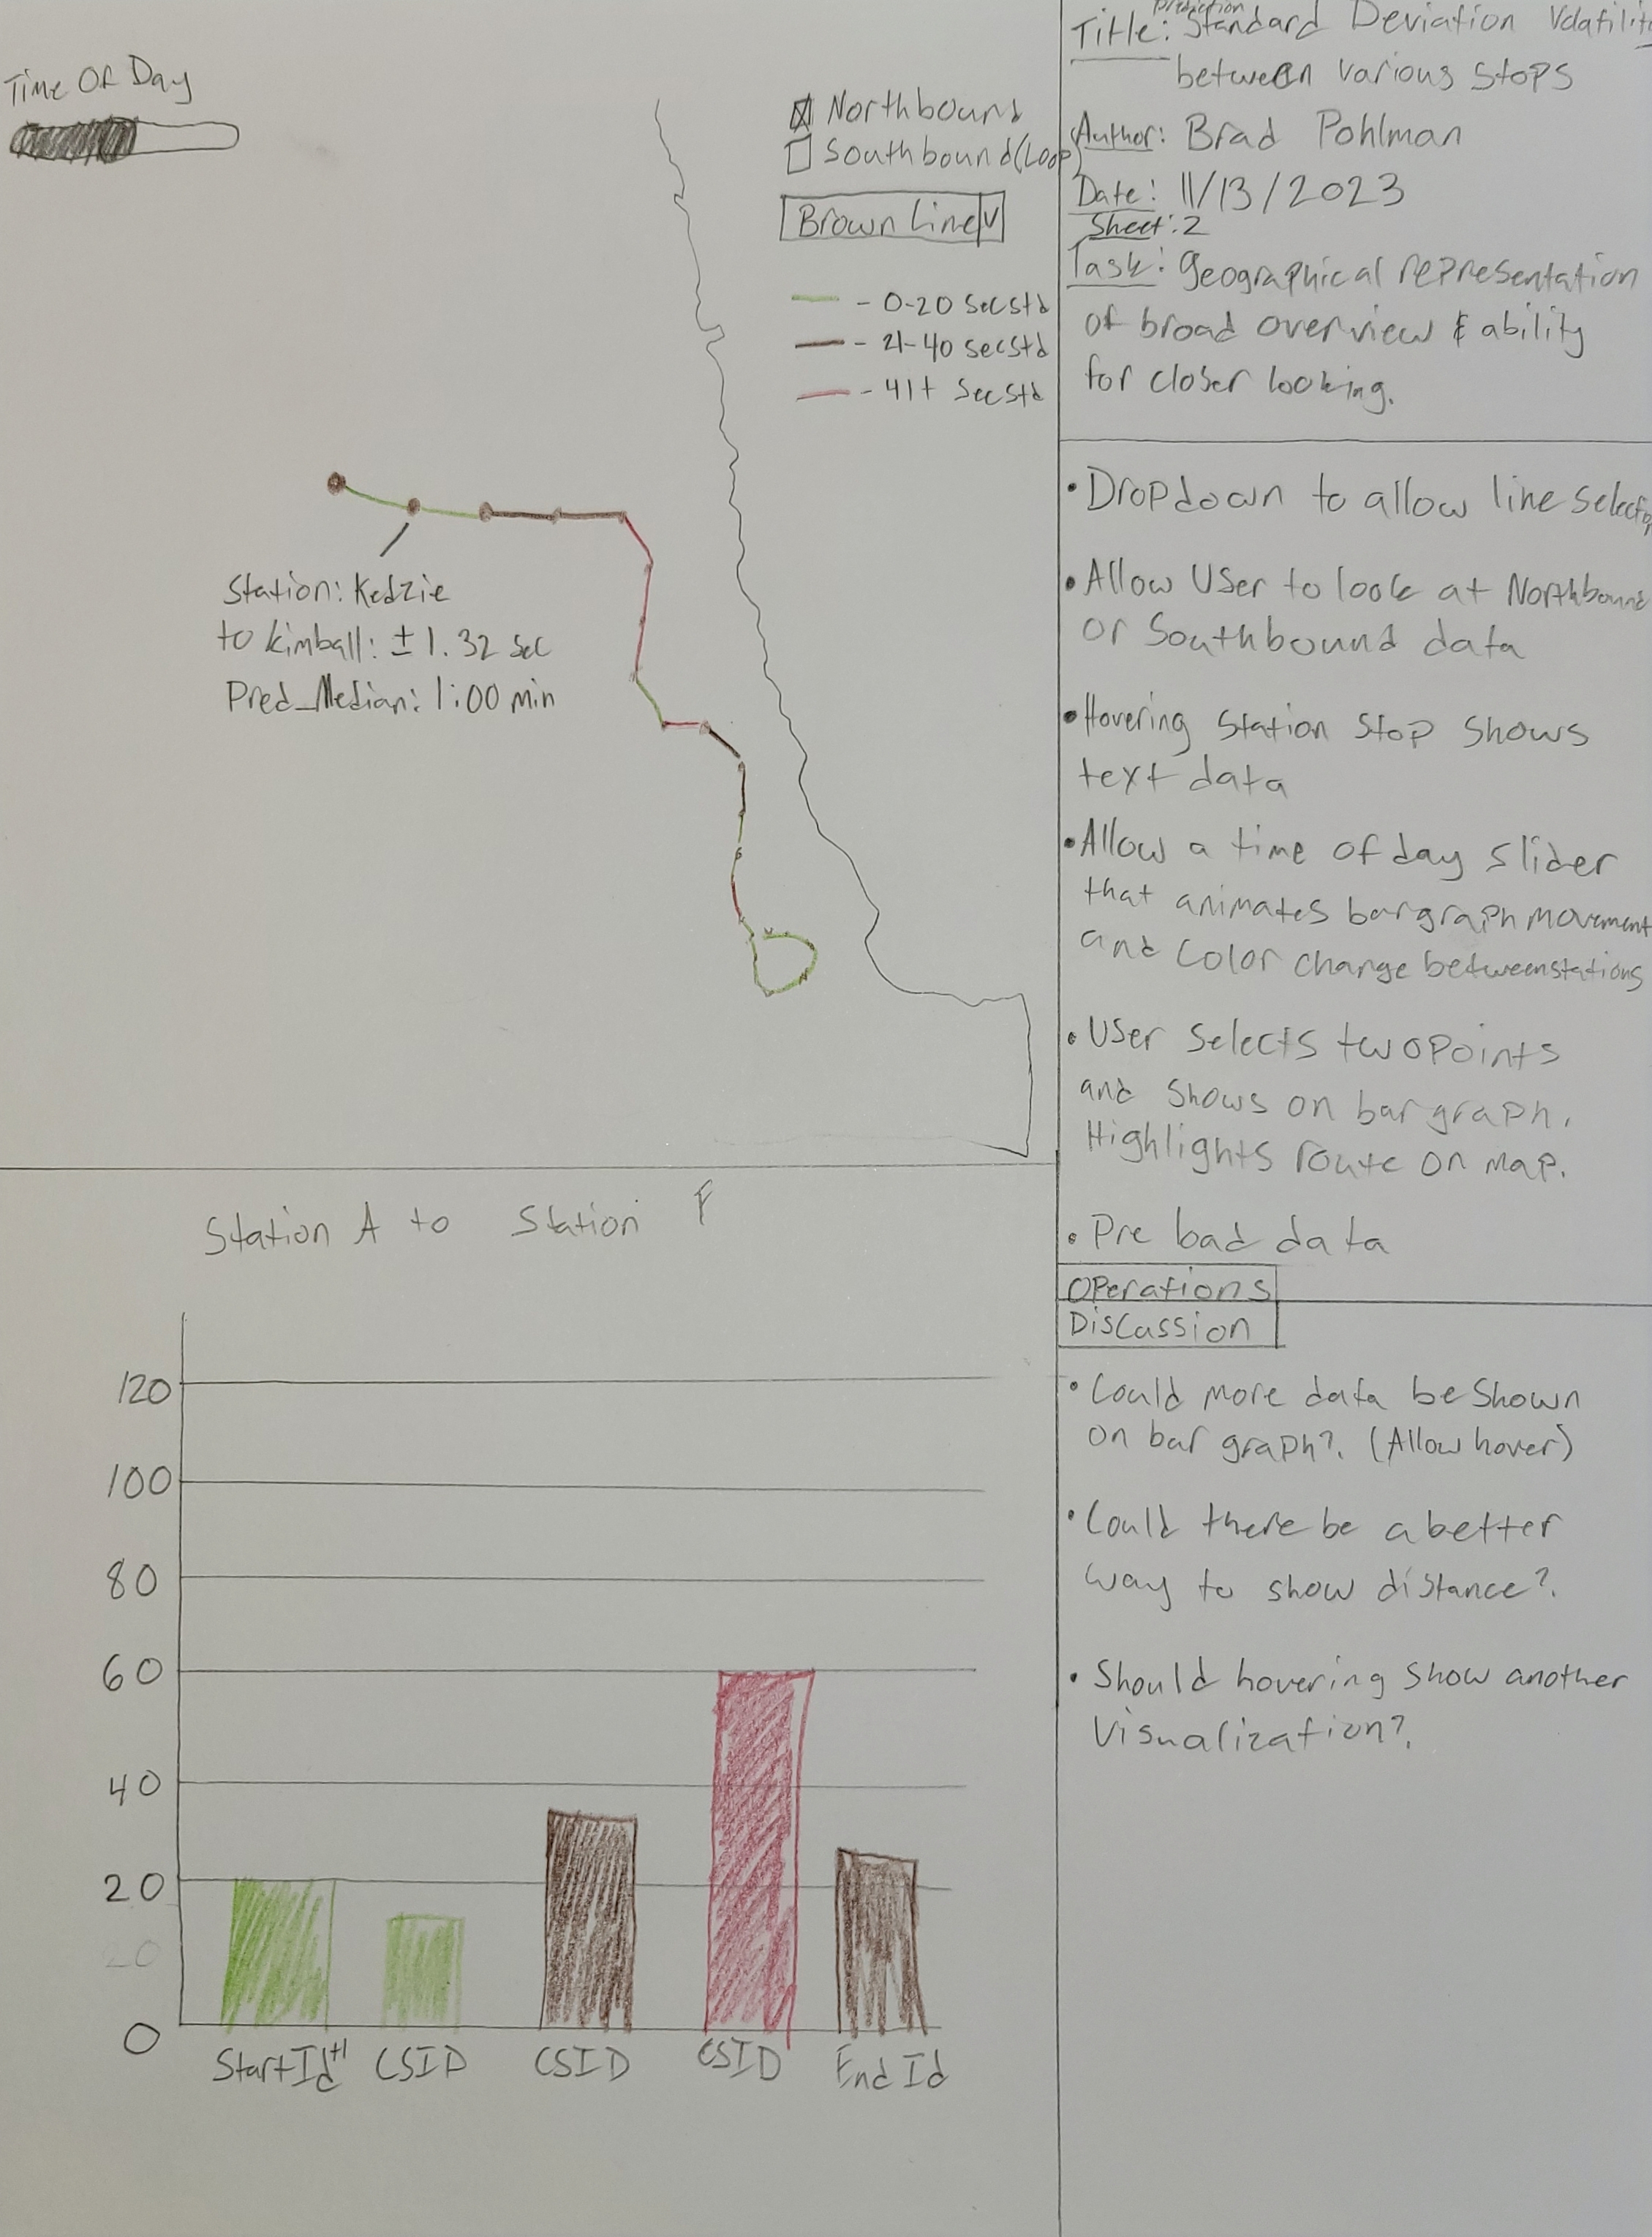 Time Of Day
Northbound
Southbound(Loop)
Brown Line V
- 0-20 Sec std
- 21-40 sec std
- 41+ Sec std
Station: Kedzie
to Kimball: ± 1.32 sec
Pred_Median: 1:00 min
Prediction
Title: Standard Deviation Volatility
between various stops
Author: Brad Pohlman
Date: 11/13/2023
Sheet: 2
Task: Geographical representation
of broad overview & ability
for closer looking.
• Dropdown to allow line selection
• Allow User to look at Northbound
or Southbound data
• Hovering Station Stop Shows
text data
• Allow a time of day slider
that animates bargraph movement
and color change between stations
• User selects two points
and shows on bar graph.
Highlights route on map.
• Pre bad data
Operations
Discussion
• Could more data be shown
on bar graph?. (Allow hover)
• Could there be a better
way to show distance?.
• Should hovering show another
visualization?.
Station A to Station F
120
100
80
60
40
20
20
0
StartId+1 CSID CSID CSID End Id